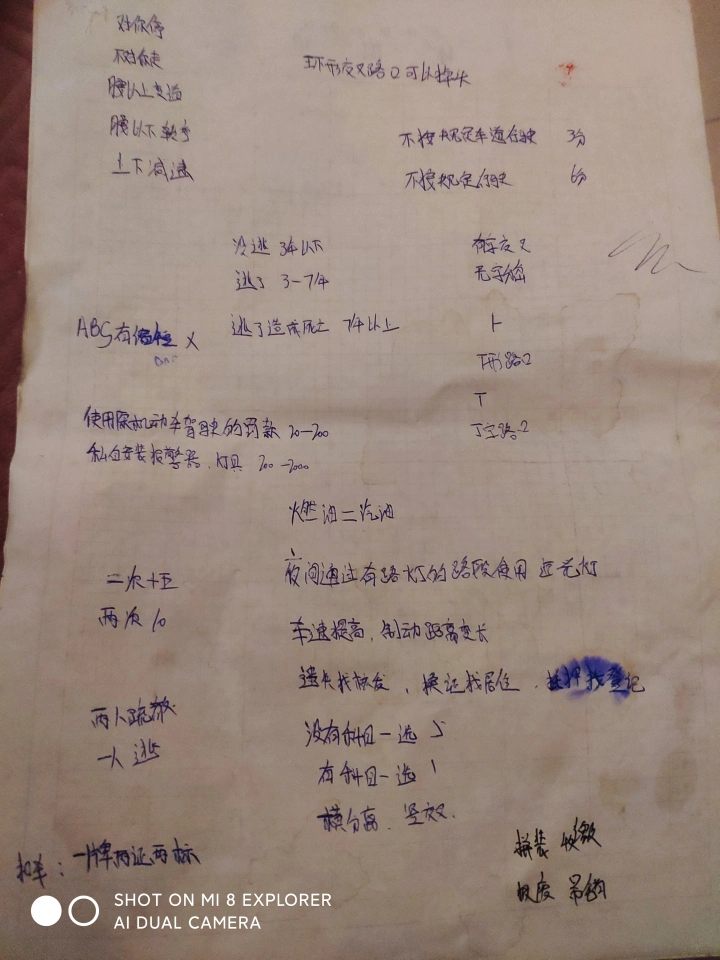 对你停
不对你走
腰以上变道
腰以下转弯
上下减速
环形交叉路口可以掉头
不按规定车道行驶 3分
不按规定行驶 6分
没逃 3年以下
逃了 3-7年
逃了造成死亡 7年以上
有字交叉
无字
ABS有 X
⊢
T形路口
T
丁字路口
使用 机动车驾驶 的罚款 20-200
私自安装报警器、灯具 200-2000
燃油二汽油
夜间通过有路灯的路段使用近光灯
二次十五
两次10
车速提高,制动距离变长
遗失找核发,换证找居住,抵押找登记
两人疏散
一人逃
没有科目一选 5
有科目一选 1
横分离,竖双.
扣车: 一牌两证两标
拼装 收缴
吊销
SHOT ON MI 8 EXPLORER
AI DUAL CAMERA